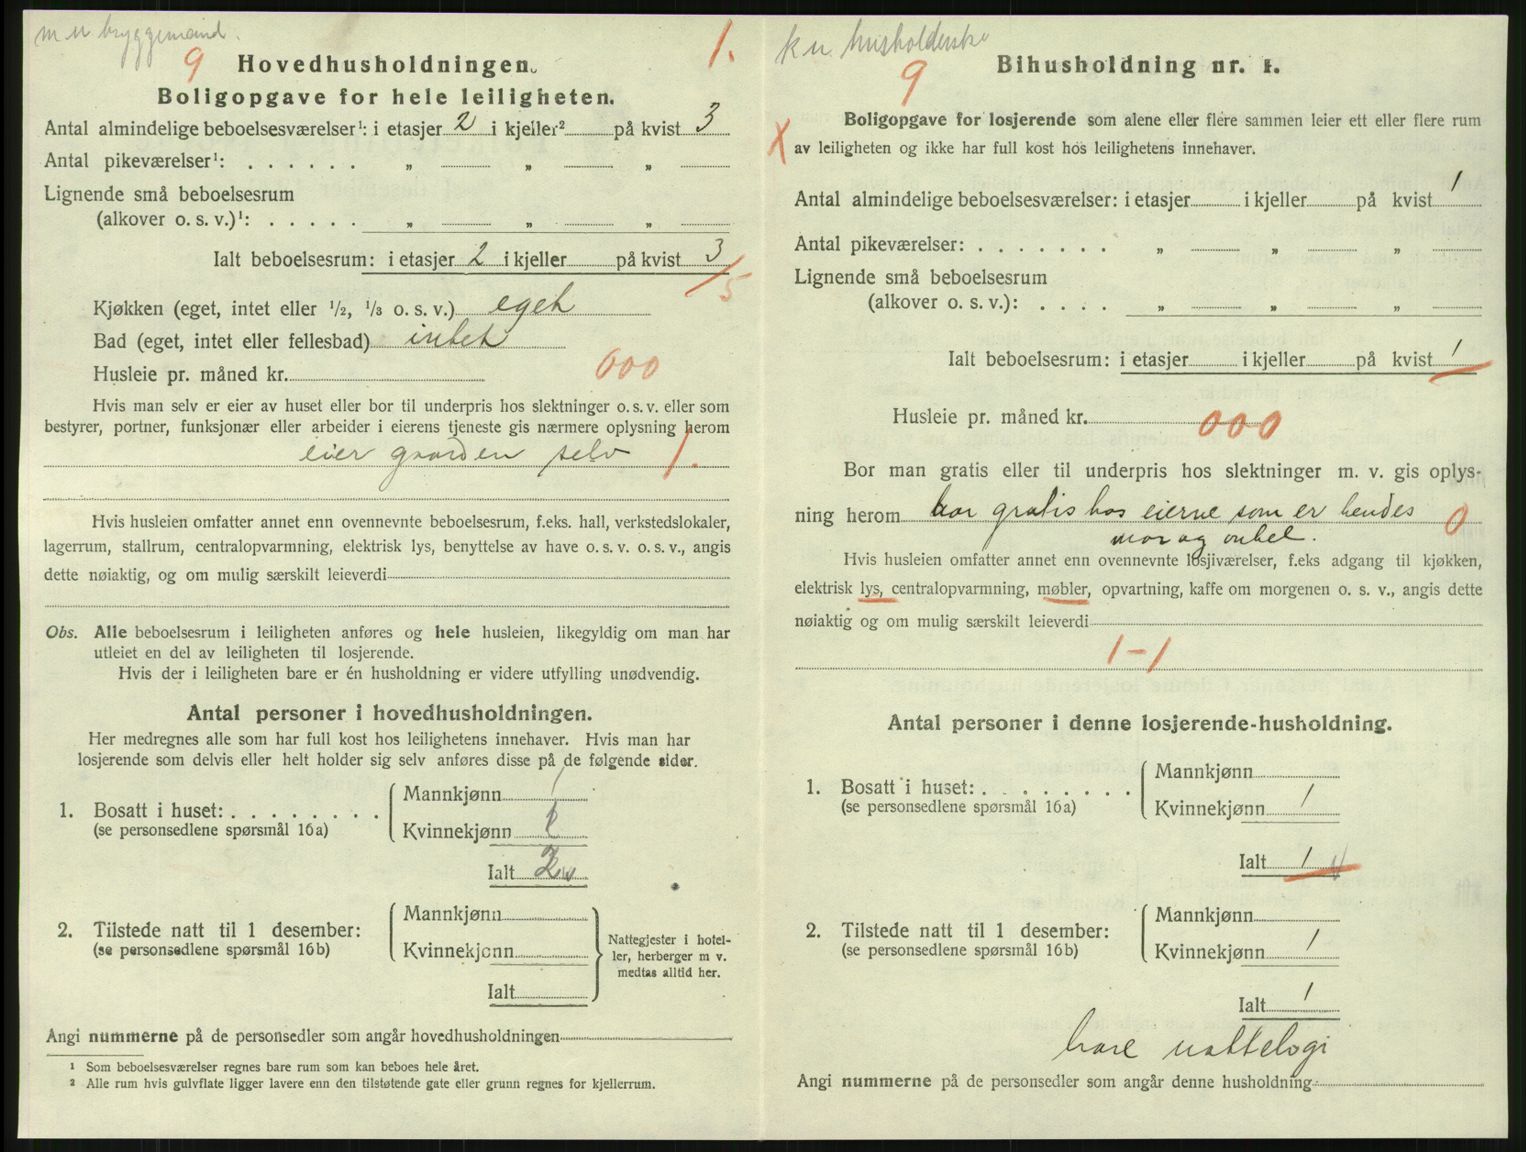 m u bryggemand.
9
1.
Hovedhusholdningen.
Boligopgave for hele leiligheten.
Antal almindelige beboelsesværelser¹: i etasjer 2 i kjeller² på kvist 3
Antal pikeværelser¹: . . . . . . „ „ „
Lignende små beboelsesrum
(alkover o. s. v.)¹: . . . . . „ „ „
Ialt beboelsesrum: i etasjer 2 i kjeller på kvist 3
5
Kjøkken (eget, intet eller 1/2, 1/3 o. s. v.) eget
Bad (eget, intet eller fellesbad) intet
Husleie pr. måned kr. 000
Hvis man selv er eier av huset eller bor til underpris hos slektninger o. s. v. eller som
bestyrer, portner, funksjonær eller arbeider i eierens tjeneste gis nærmere oplysning herom
eier gaarden selv 1.
Hvis husleien omfatter annet enn ovennevnte beboelsesrum, f.eks. hall, verkstedslokaler,
lagerrum, stallrum, centralopvarmning, elektrisk lys, benyttelse av have o. s. v. o. s. v., angis
dette nøiaktig, og om mulig særskilt leieverdi
Obs. Alle beboelsesrum i leiligheten anføres og hele husleien, likegyldig om man har
utleiet en del av leiligheten til losjerende.
Hvis der i leiligheten bare er én husholdning er videre utfylling unødvendig.
Antal personer i hovedhusholdningen.
Her medregnes alle som har full kost hos leilighetens innehaver. Hvis man har
losjerende som delvis eller helt holder sig selv anføres disse på de følgende sider.
1. Bosatt i huset: . . . . . . . .
(se personsedlene spørsmål 16a)
Mannkjønn 1
Kvinnekjønn 1
Ialt 2
2. Tilstede natt til 1 desember:
(se personsedlene spørsmål 16b)
Mannkjønn
Kvinnekjønn
Ialt
Nattegjester i hotel-
ler, herberger m v.
medtas alltid her.
Angi nummerne på de personsedler som angår hovedhusholdningen
¹ Som beboelsesværelser regnes bare rum som kan beboes hele året.
² Alle rum hvis gulvflate ligger lavere enn den tilstøtende gate eller grunn regnes for kjellerrum.
k u. husholderske
9
Bihusholdning nr. 1.
X
Boligopgave for losjerende som alene eller flere sammen leier ett eller flere rum
av leiligheten og ikke har full kost hos leilighetens innehaver.
Antal almindelige beboelsesværelser: i etasjer i kjeller på kvist 1
Antal pikeværelser: . . . . . . . „ „ „
Lignende små beboelsesrum
(alkover o. s. v.): . . . . „ „ „
Ialt beboelsesrum: i etasjer i kjeller på kvist 1
Husleie pr. måned kr. 000
Bor man gratis eller til underpris hos slektninger m. v. gis oplys-
ning herom bor gratis hos eierne som er hendes 0
mor og onkel.
Hvis husleien omfatter annet enn ovennevnte losjiværelser, f.eks adgang til kjøkken,
elektrisk lys, centralopvarmning, møbler, opvartning, kaffe om morgenen o. s. v., angis dette
nøiaktig og om mulig særskilt leieverdi
1-1
Antal personer i denne losjerende-husholdning.
1. Bosatt i huset: . . . . . . . .
(se personsedlene spørsmål 16a)
Mannkjønn
Kvinnekjønn 1
Ialt 1
2. Tilstede natt til 1 desember:
(se personsedlene spørsmål 16b)
Mannkjønn
Kvinnekjønn 1
Ialt 1
bare nattelogi
Angi nummerne på de personsedler som angår denne husholdning